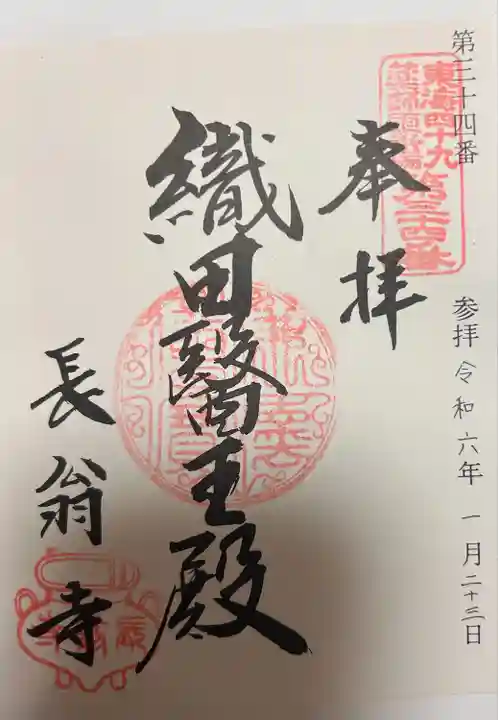 第三十四番
参拝 令和六年 一月二十三日
東海四十九
薬師霊場
第三十四番
奉拝
織田醫王殿
長翁寺